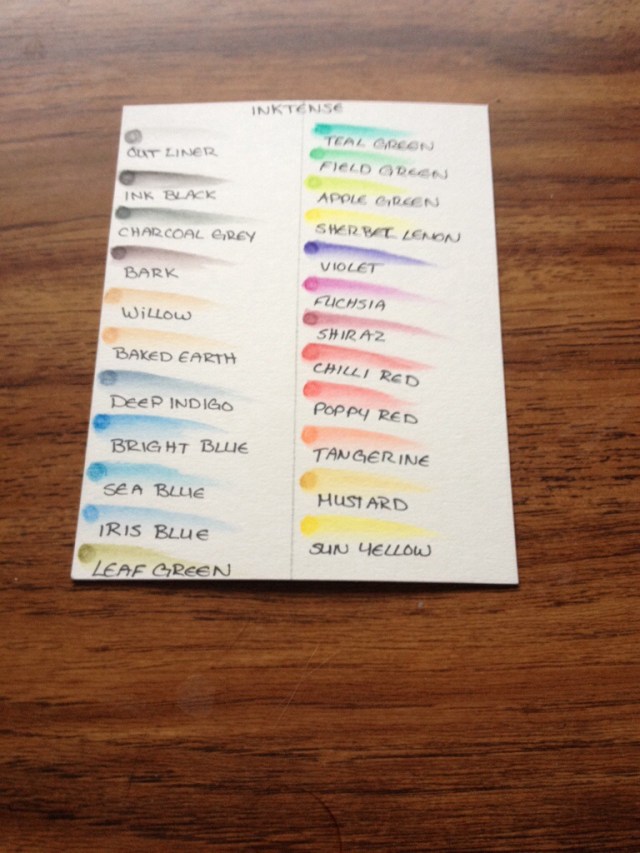 INKTENSE
OUTLINER
INK BLACK
CHARCOAL GREY
BARK
WILLOW
BAKED EARTH
DEEP INDIGO
BRIGHT BLUE
SEA BLUE
IRIS BLUE
LEAF GREEN
TEAL GREEN
FIELD GREEN
APPLE GREEN
SHERBET LEMON
VIOLET
FUCHSIA
SHIRAZ
CHILLI RED
POPPY RED
TANGERINE
MUSTARD
SUN YELLOW